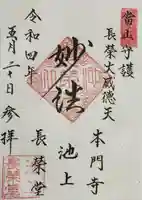 當山守護
長榮大威徳天
本門寺
妙法
池上
長榮堂
令和四年
五月二十日参拝
長榮堂